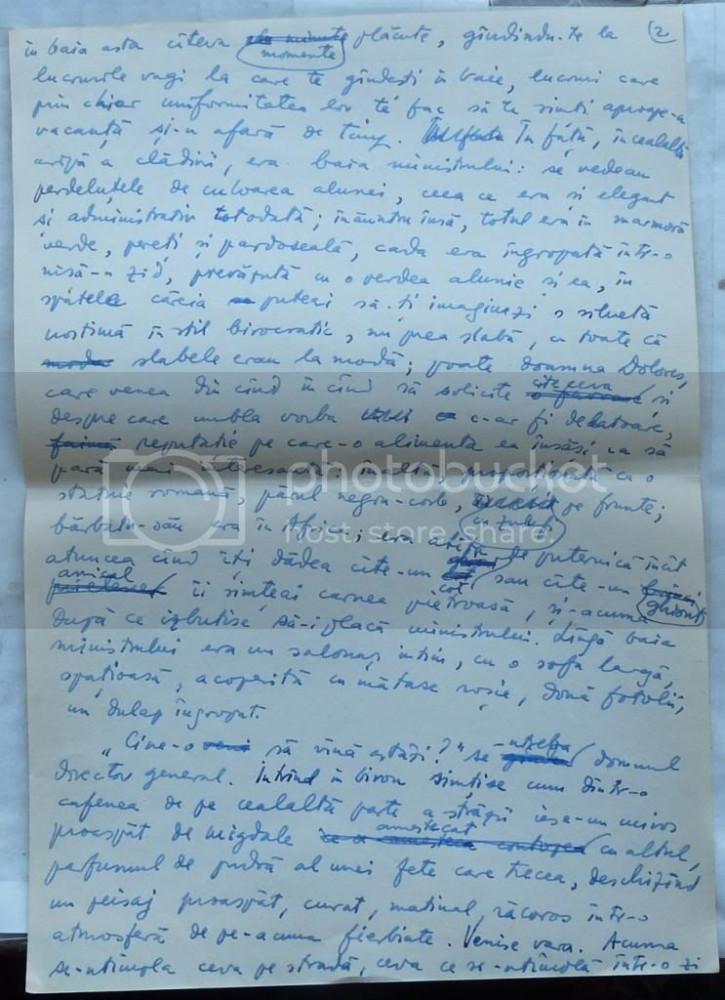 2
în baia asta cîteva momente plăcute, gîndindu-te la
lucrurile vagi la care te gîndești în baie, lucruri care
prin chiar uniformitatea lor te fac să te simți aproape-n
vacanță și-n afară de timp. În față, în cealaltă
aripă a clădirii, era baia ministrului: se vedeau
perdeluțele de culoarea alunei, ceea ce era și elegant
și administrativ totodată; înăuntru însă, totul era în marmoră
verde, pereți și pardoseală, cada era îngropată într-o
nișă-n zid, prevăzută cu o perdea alunie și ea, în
spatele căreia puteai să-ți imaginezi o siluetă
nostimă în stil birocratic, nu prea slabă, cu toate că
slabele erau la modă; poate doamna Dolores,
care venea din cînd în cînd să solicite cîte ceva și
despre care umbla vorba c-ar fi debatoare,
reputație pe care-o alimenta ea însăși ca să
pară mai interesantă, înaltă, proporționată ca o
statuie romană, părul negru-corb, cu zulufi pe frunte;
bărbatu-său era în Africa; era atît de puternică încît
atuncea cînd îți dădea cîte-un cot sau cîte-un ghiont
amical îi simțeai carnea pietroasă, și-acuma
după ce izbutise să-i placă ministrului. Lîngă baia
ministrului era un salonaș intim, cu o sofa largă,
spațioasă, acoperită cu mătase roșie, două fotolii,
un dulap îngropat.
„Cine-o să vină astăzi?" se-ntreba domnul
director general. Intrînd în birou simțise cum dintr-o
cafenea de pe cealaltă parte a străzii iese-un miros
proaspăt de migdale amestecat cu altul,
parfumul de pudră al unei fete care trecea, deschizînd
un peisaj proaspăt, curat, matinal, răcoros într-o
atmosferă de pe-acuma fierbinte. Venise vara. Acuma
se-ntîmpla ceva pe stradă, ceva ce se-ntîmplă într-o zi
photobucket
host. store. share.